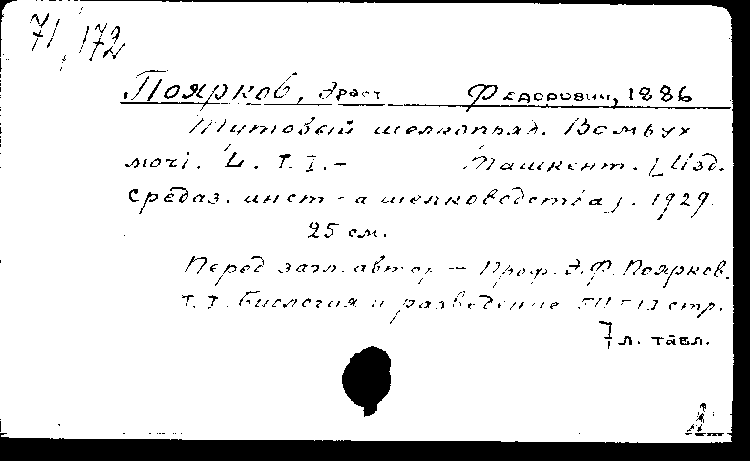 71,172
Поярков, Эраст Федорович, 1886
Тутовый шелкопряд. Bombyx
mori. L. Т. I. – Ташкент. [Изд.
Средаз. инст-а шелководства]. 1929.
25 см.
Перед загл. автор – Проф. Э. Ф. Поярков.
Т. I. Биология и разведение стр.
7 л. табл.